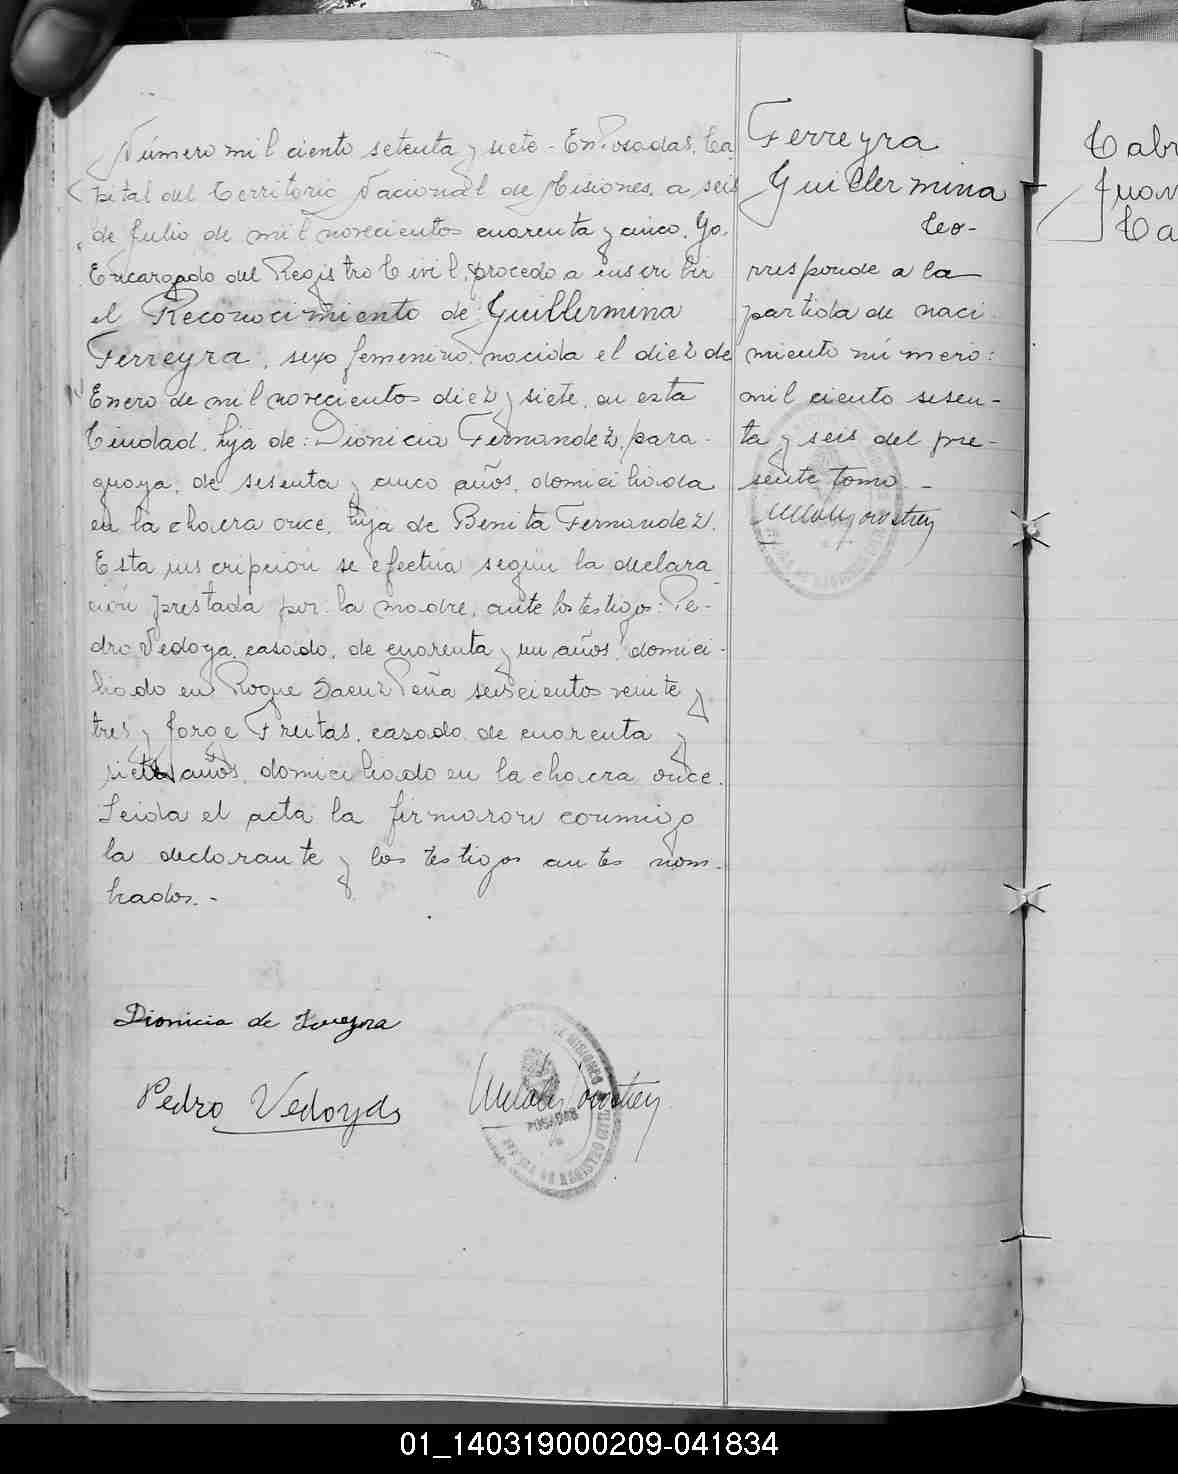 Número mil ciento setenta y siete - En Posadas, Ca
pital del Territorio Nacional de Misiones, a seis
de Julio de mil novecientos cuarenta y cinco. Yo,
Encargado del Registro Civil, procedo a inscribir
el Reconocimiento de Guillermina
Ferreyra, sexo femenino, nacida el diez de
Enero de mil novecientos diez y siete, en esta
Ciudad, hija de: Dionicia Fernandez, para-
guaya, de sesenta y cinco años, domiciliada
en la chacra once, hija de Benita Fernandez.
Esta inscripción se efectúa según la declara
ción prestada por la madre, ante los testigos: Pe-
dro Vedoya, casado, de cuarenta y un años, domici-
liado en Roque Saenz Peña seiscientos veinte y
tres y Jorge Freitas, casado, de cuarenta y
siete años, domiciliado en la chacra once.
Leida el acta la firmaron conmigo
la declarante y los testigos antes nom-
brados. -
Dionicia de Ferreyra
Pedro Vedoya
POSADAS
DE REGISTRO CIVIL
MISIONES
Ferreyra
Guillermina
Co-
rresponde a la
partida de naci
miento número:
mil ciento sesen-
ta y seis del pre-
sente tomo -
Cabr
Juan
Ca
01_140319000209-041834